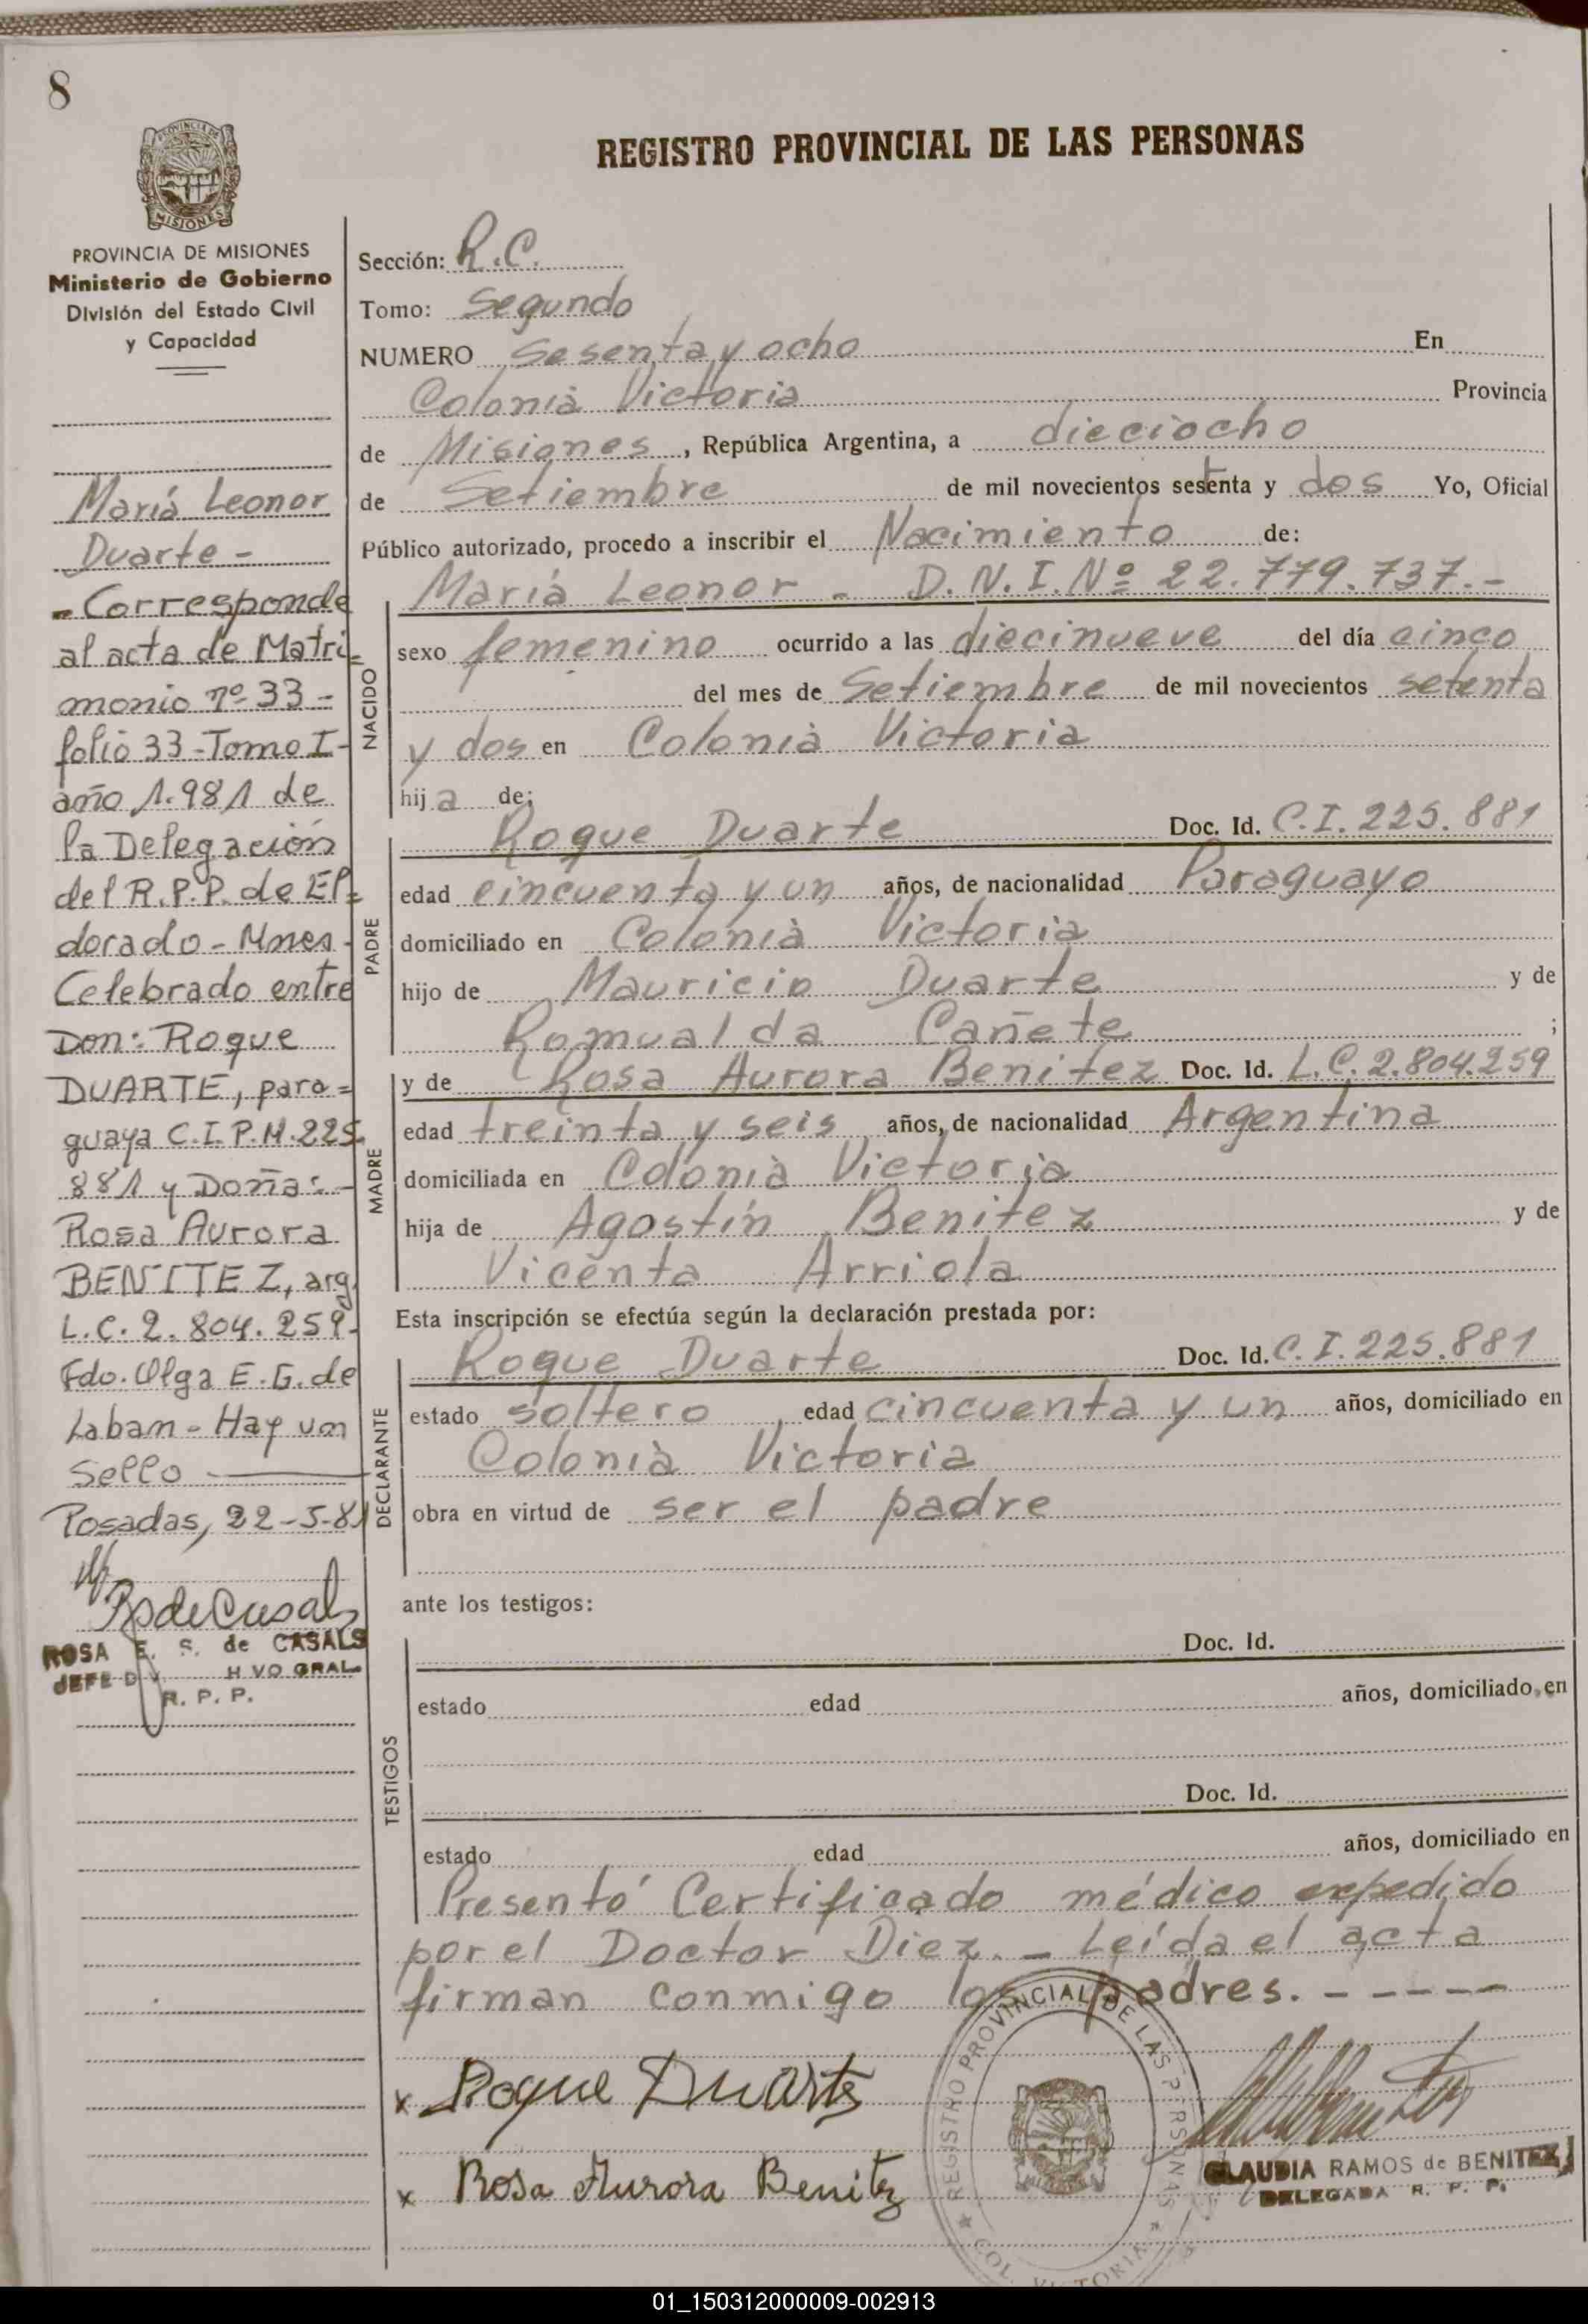 8
PROVINCIA DE
MISIONES
REGISTRO PROVINCIAL DE LAS PERSONAS
PROVINCIA DE MISIONES
Ministerio de Gobierno
División del Estado Civil
y Capacidad
María Leonor
Duarte -
- Corresponde
al acta de Matri=
monio nº 33 -
folio 33 - Tomo I -
año 1.981 de
la Delegación
del R.P.P. de El=
dorado - Mnes -
Celebrado entre
Don: Roque
DUARTE, para=
guaya C.I.P.M. 225.
881 y Doña: -
Rosa Aurora
BENITEZ, arg.
L.C. 2.804.259-
Fdo. Olga E. G. de
Laban - Hay un
Sello
Posadas, 22-5-81
ROSA E. S. de CASALS
JEFE
R. P. P.
Sección: R.C.
Tomo: Segundo
NUMERO Sesenta y ocho En
Colonia Victoria Provincia
de Misiones, República Argentina, a dieciocho
de Setiembre de mil novecientos setenta y dos Yo, Oficial
Público autorizado, procedo a inscribir el Nacimiento de:
NACIDO
María Leonor - D.N.I. Nº 22.779.737.-
sexo femenino ocurrido a las diecinueve del día cinco
del mes de Setiembre de mil novecientos setenta
y dos en Colonia Victoria
hija de:
PADRE
Roque Duarte Doc. Id. C.I. 225.881
edad cincuenta y un años, de nacionalidad Paraguayo
domiciliado en Colonia Victoria
hijo de Mauricio Duarte y de
Romualda Cañete ;
MADRE
y de Rosa Aurora Benitez Doc. Id. L.C. 2.804.259
edad treinta y seis años, de nacionalidad Argentina
domiciliada en Colonia Victoria
hija de Agostín Benitez y de
Vicenta Arriola
Esta inscripción se efectúa según la declaración prestada por:
DECLARANTE
Roque Duarte Doc. Id. C.I. 225.881
estado soltero, edad cincuenta y un años, domiciliado en
Colonia Victoria
obra en virtud de ser el padre
ante los testigos:
TESTIGOS
Doc. Id.
estado edad años, domiciliado en
Doc. Id.
estado edad años, domiciliado en
Presentó Certificado médico expedido
por el Doctor Diez. - Leída el acta
firman conmigo los padres. - - - - -
x Roque Duarte
x Rosa Aurora Benitez
REGISTRO PROVINCIAL DE LAS PERSONAS
COL. VICTORIA
CLAUDIA RAMOS de BENITEZ
DELEGADA R. P. P.
01_150312000009-002913